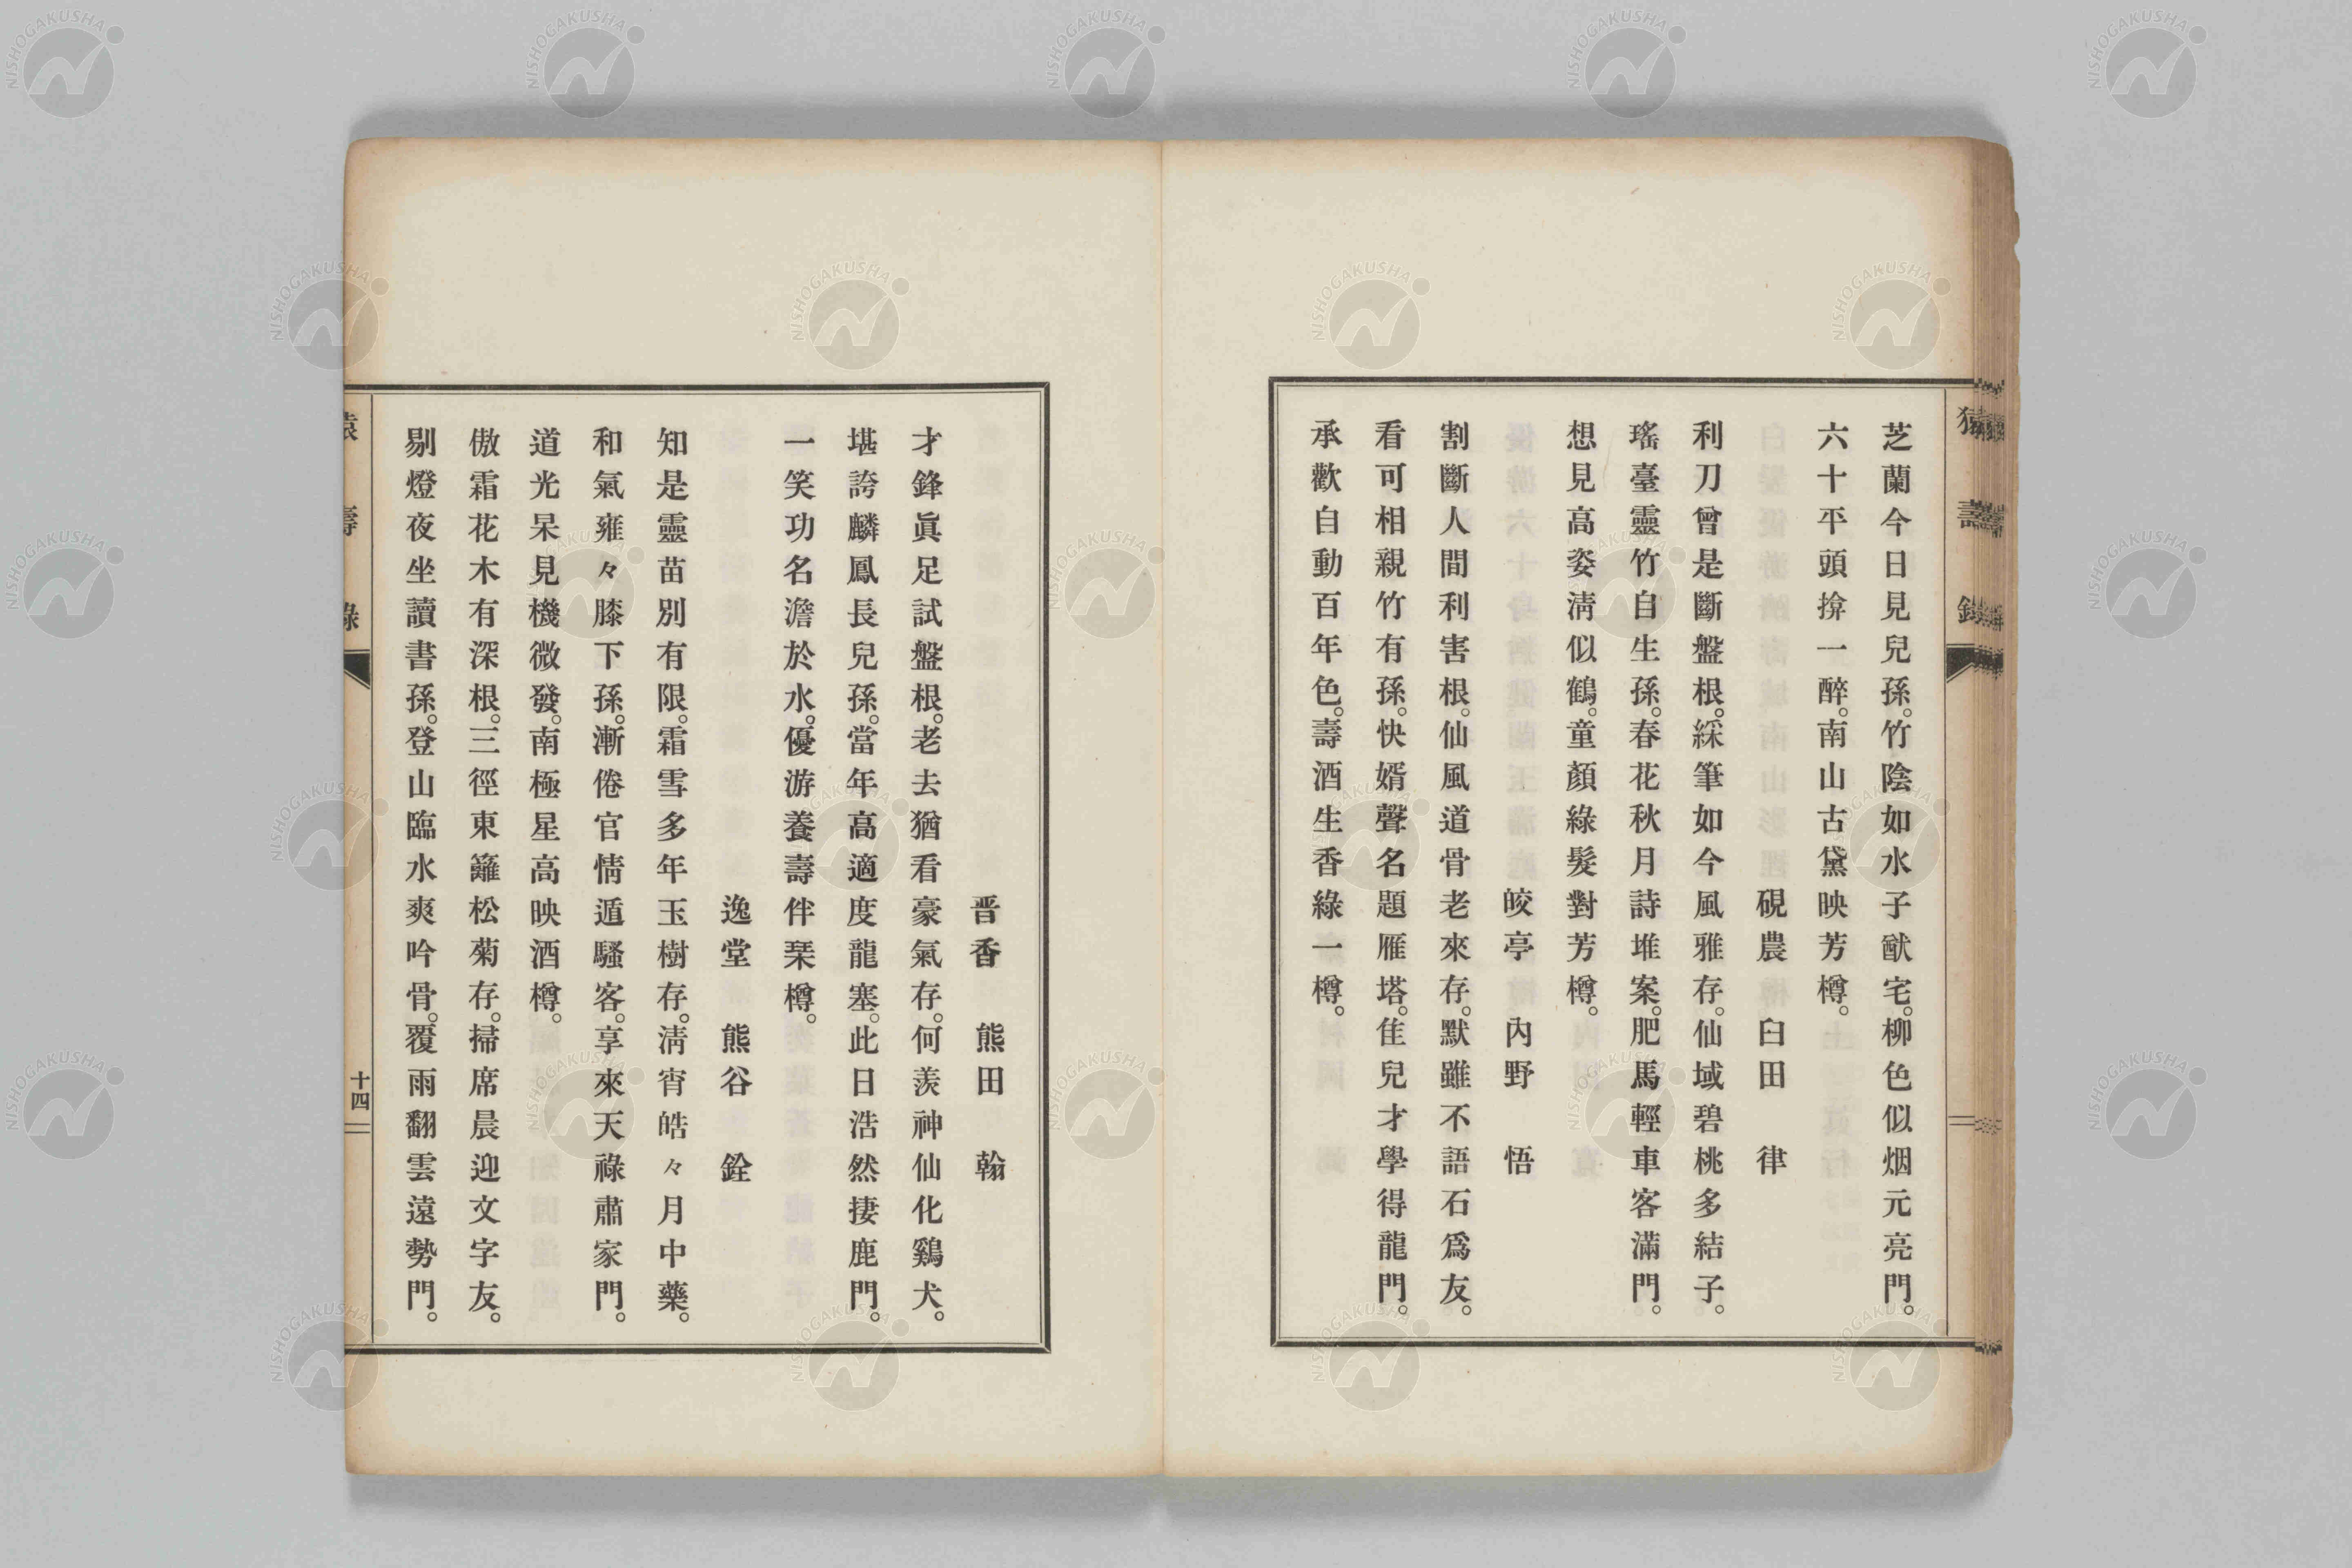 猿壽錄
芝蘭今日見兒孫。竹陰如水子猷宅。柳色似烟元亮門。
六十平頭揜一醉。南山古黛映芳樽。
硯農　臼田　律
利刀曾是斷盤根。綵筆如今風雅存。仙域碧桃多結子。
瑤臺靈竹自生孫。春花秋月詩堆案。肥馬輕車客滿門。
想見高姿淸似鶴。童顏綠髮對芳樽。
皎亭　內野　悟
割斷人間利害根。仙風道骨老來存。默雖不語石爲友。
看可相親竹有孫。快婿聲名題雁塔。佳兒才學得龍門。
承歡自動百年色。壽酒生香綠一樽。
晋香　熊田　翰
才鋒眞足試盤根。老去猶看豪氣存。何羨神仙化鷄犬。
堪誇麟鳳長兒孫。當年高適度龍塞。此日浩然捿鹿門。
一笑功名澹於水。優游養壽伴琹樽。
逸堂　熊谷　銓
知是靈苗別有限。霜雪多年玉樹存。淸宵皓々月中藥。
和氣雍々膝下孫。漸倦官情遁騷客。享來天祿肅家門。
道光呆見機微發。南極星高映酒樽。
傲霜花木有深根。三徑東籬松菊存。掃席晨迎文字友。
剔燈夜坐讀書孫。登山臨水爽吟骨。覆雨翻雲遠勢門。
猿壽錄
十四
NISHOGAKUSHA